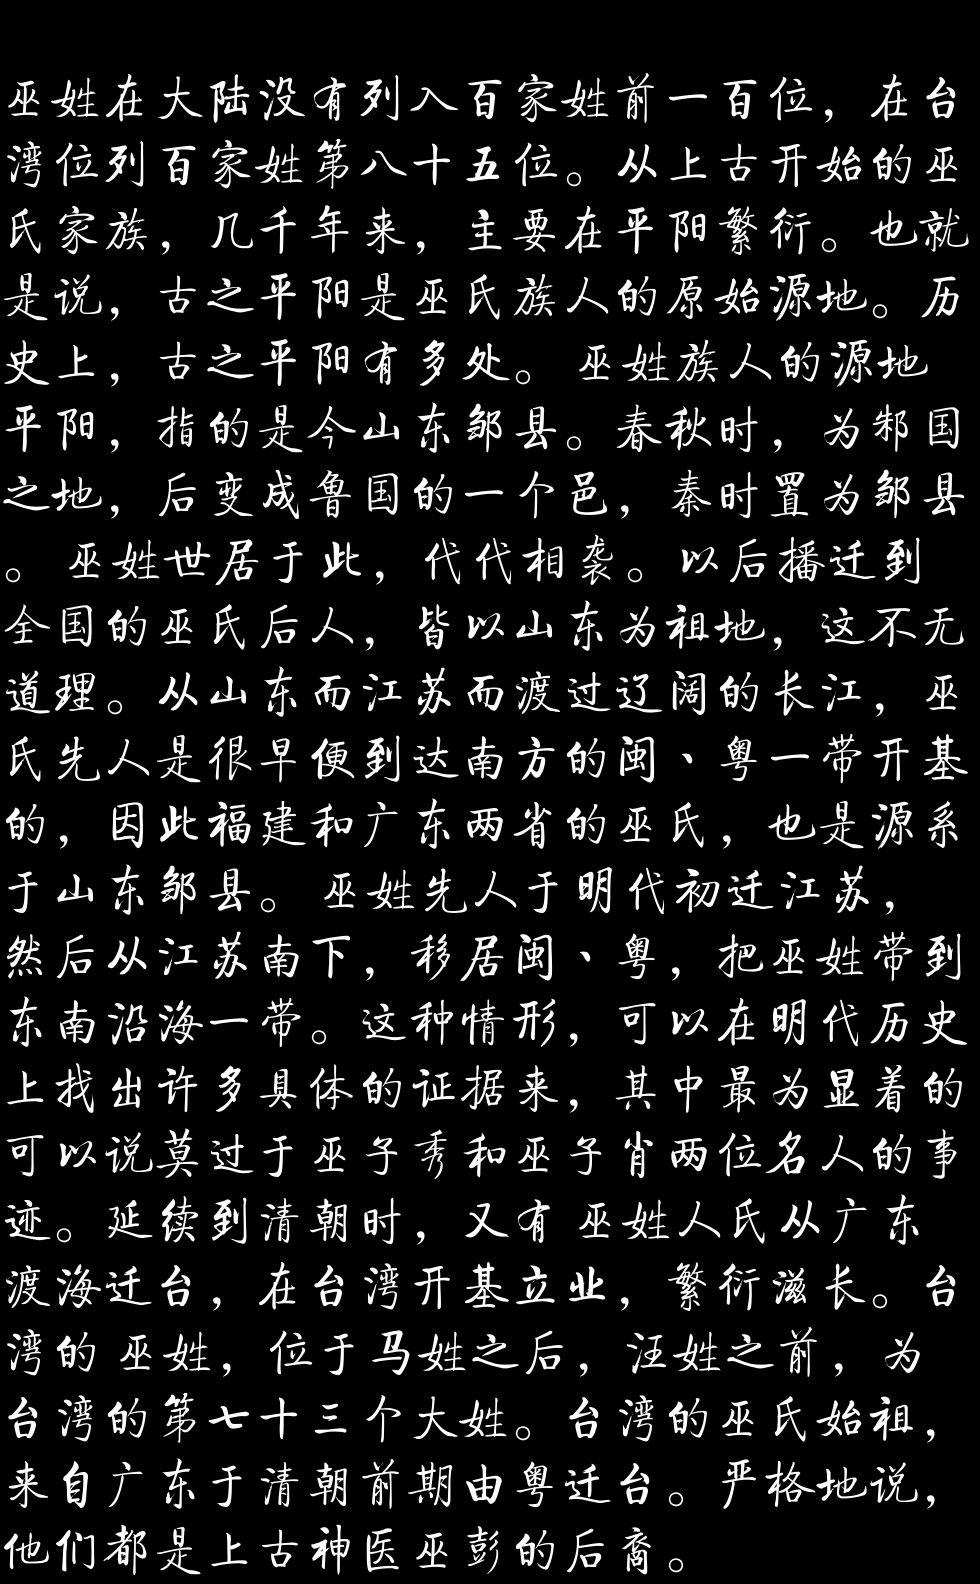 巫姓在大陆没有列入百家姓前一百位，在台
湾位列百家姓第八十五位。从上古开始的巫
氏家族，几千年来，主要在平阳繁衍。也就
是说，古之平阳是巫氏族人的原始源地。历
史上，古之平阳有多处。 巫姓族人的源地
平阳，指的是今山东邹县。春秋时，为邾国
之地，后变成鲁国的一个邑，秦时置为邹县
。 巫姓世居于此，代代相袭。以后播迁到
全国的巫氏后人，皆以山东为祖地，这不无
道理。从山东而江苏而渡过辽阔的长江，巫
氏先人是很早便到达南方的闽、粤一带开基
的，因此福建和广东两省的巫氏，也是源系
于山东邹县。 巫姓先人于明代初迁江苏，
然后从江苏南下，移居闽、粤，把巫姓带到
东南沿海一带。这种情形，可以在明代历史
上找出许多具体的证据来，其中最为显着的
可以说莫过于巫子秀和巫子肖两位名人的事
迹。延续到清朝时，又有 巫姓人氏从广东
渡海迁台，在台湾开基立业，繁衍滋长。台
湾的 巫姓，位于马姓之后，汪姓之前，为
台湾的第七十三个大姓。台湾的巫氏始祖，
来自广东于清朝前期由粤迁台。严格地说，
他们都是上古神医巫彭的后裔。